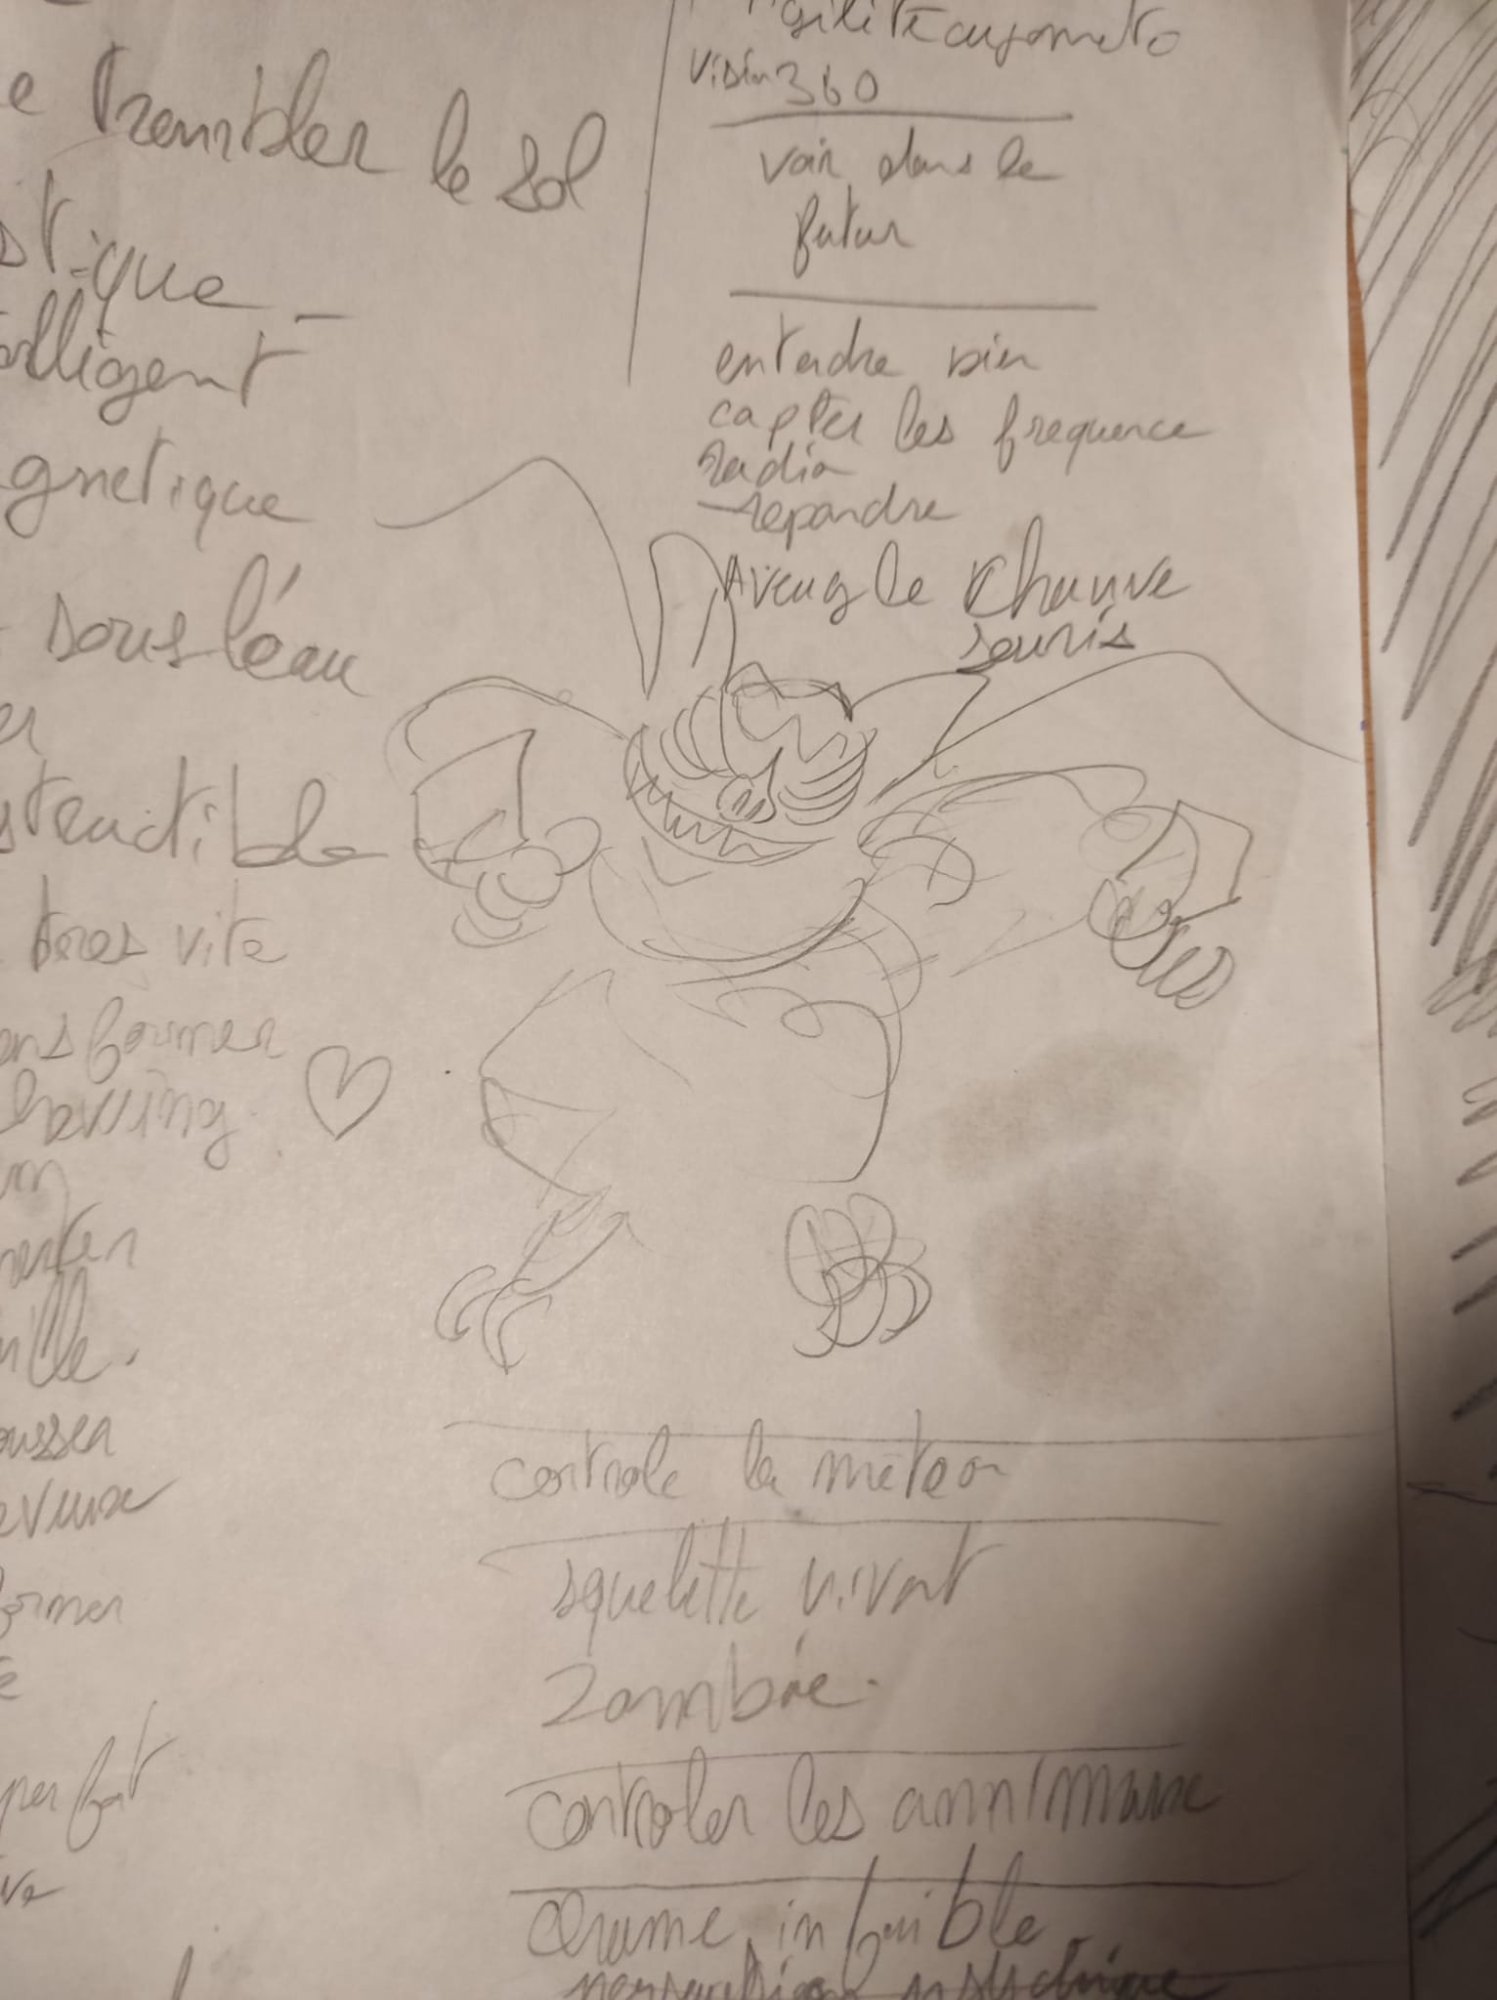 e trembler le sol
stique -
elligent
gnetique
sous l'éau
structible
tres vite
ansformer
Chewing
menter
ille.
ousser
eveux
former
e
per fort
ve
Visin 360
voir dans le
futur
entendre bien
capter les frequence
radio
repondre
Aveugle Chauve
souris
controle la meteo
squelette vivant
Zombie.
controler les annimaux
charme infaible